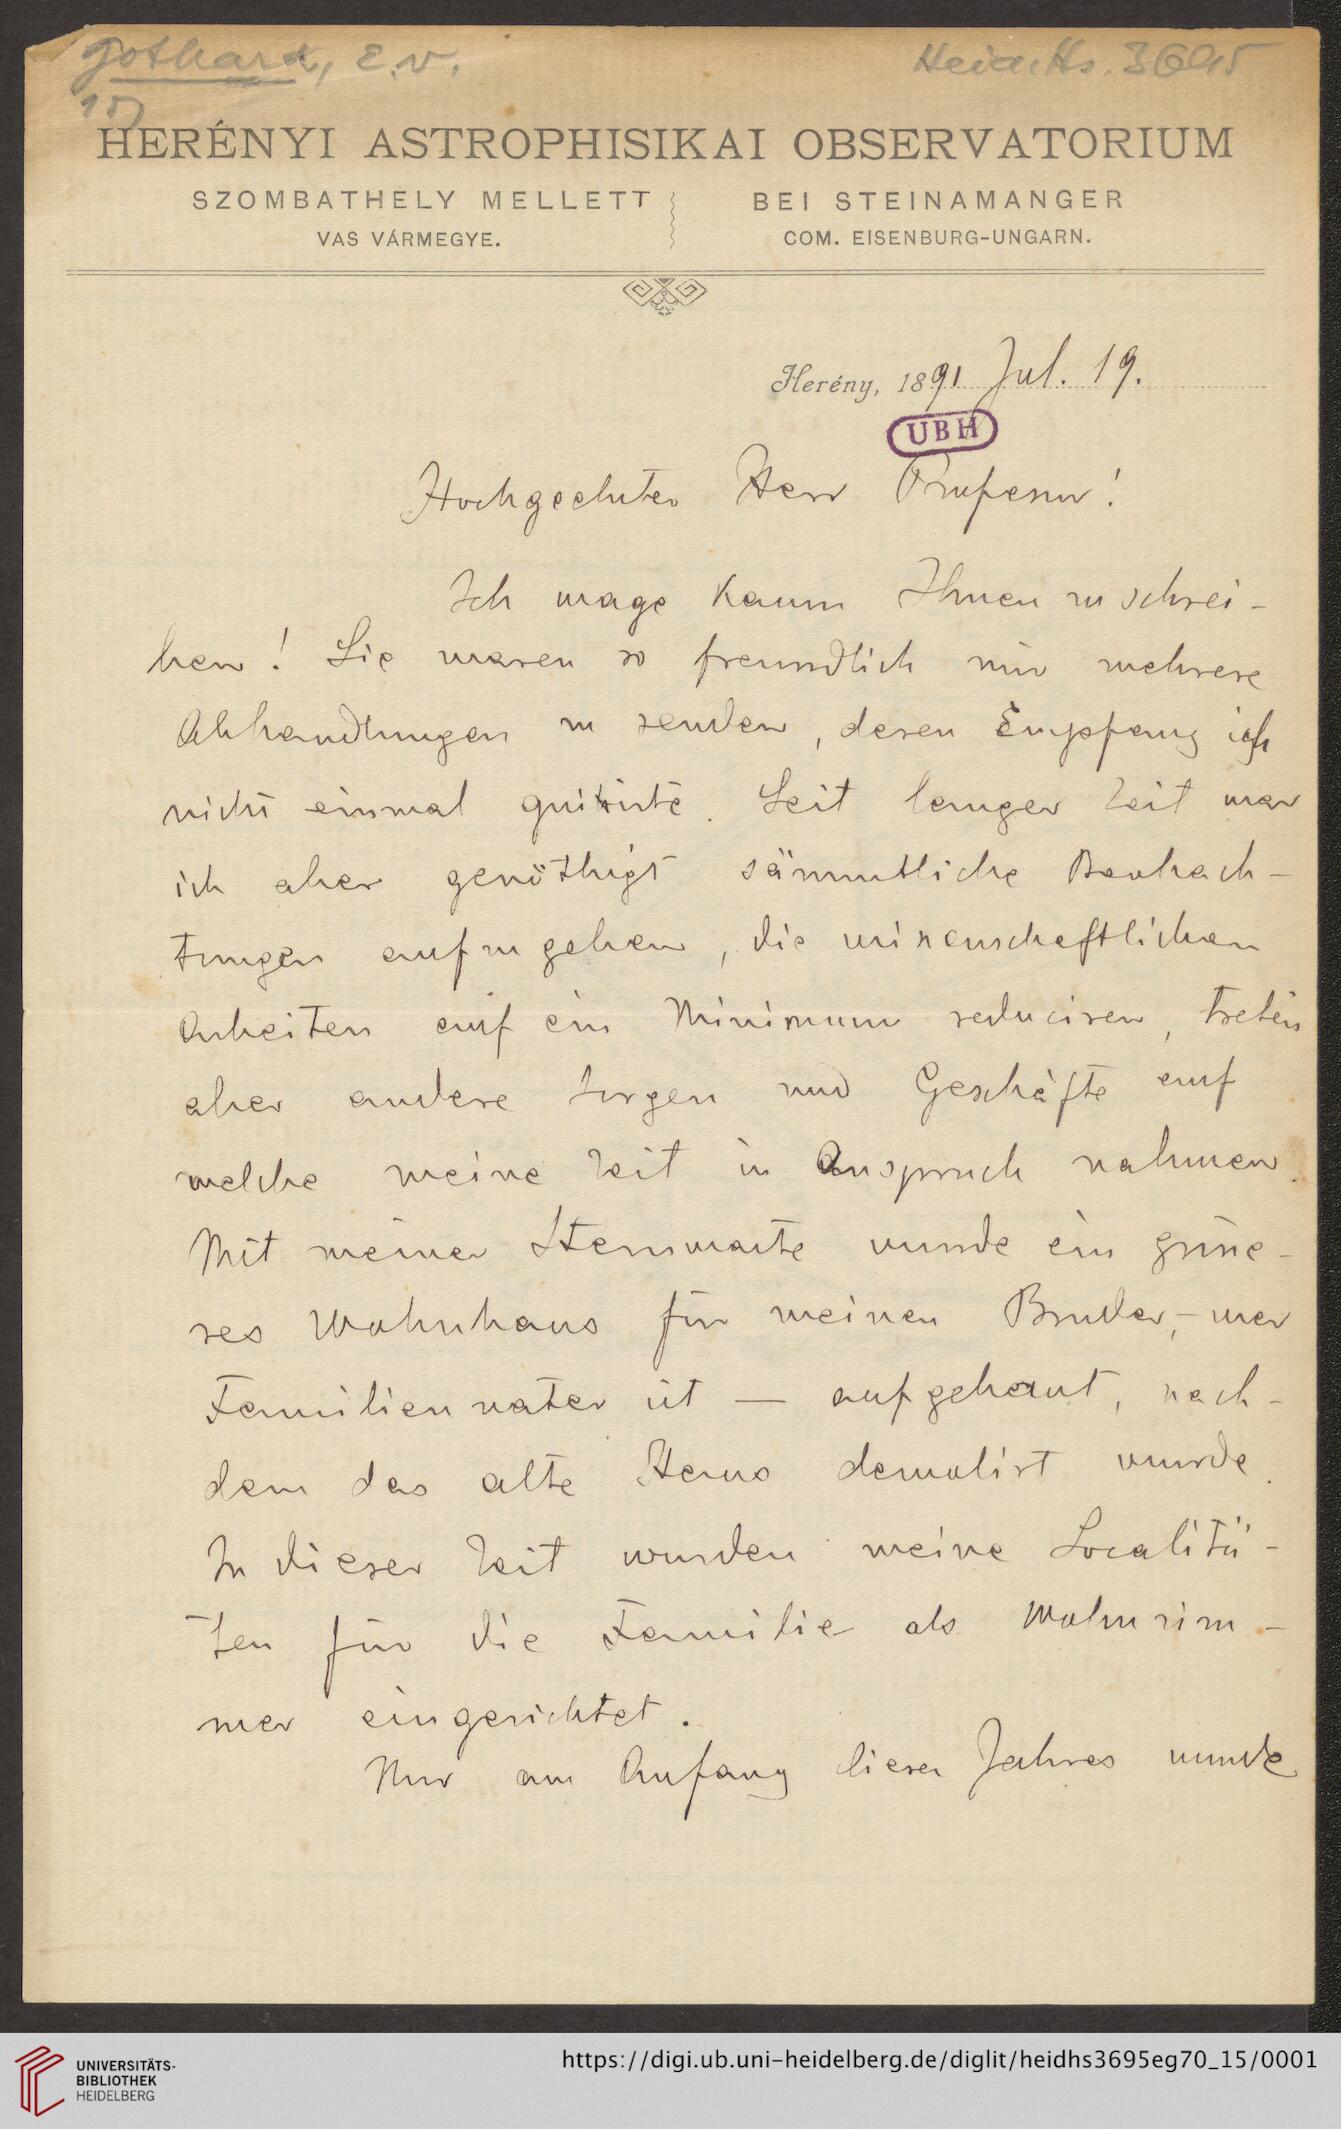 Gothard, E. v.
Heid. Hs. 3695
15)
HERÉNYI ASTROPHISIKAI OBSERVATORIUM
SZOMBATHELY MELLETT
VAS VÁRMEGYE.
BEI STEINAMANGER
COM. EISENBURG-UNGARN.
Herény, 1891 Jul. 19.
UBH
Hochgeehrter Herr Professor!
Ich wage kaum Ihnen zu schrei-
ben! Sie waren so freundlich mir mehrere
Abhandlungen zu senden, deren Empfang ich
nicht einmal quittirte. Seit langer Zeit war
ich aber genöthigt sämmtliche Beobach-
tungen aufzugeben, die wissenschaftlichen
Arbeiten auf ein Minimum reduciren, treten
aber andere Sorgen und Geschäfte auf
welche meine Zeit in Anspruch nahmen.
Mit meiner Sternwarte wurde ein grösse-
res Wohnhaus für meinen Bruder, - wer
Familienvater ist — aufgebaut, nach-
dem das alte Haus demolirt wurde.
In dieser Zeit wurden meine Localitä-
ten für die Familie als Wohnzim-
mer eingerichtet.
Nur am Anfang dieses Jahres wurde
UNIVERSITÄTS-
BIBLIOTHEK
HEIDELBERG
https://digi.ub.uni-heidelberg.de/diglit/heidhs3695eg70_15/0001